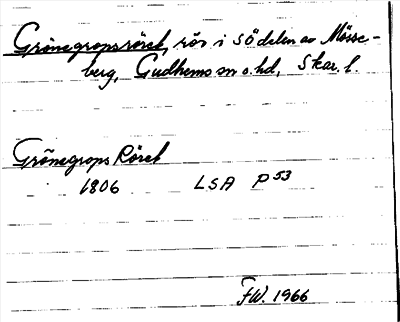 Grönegropsröret, rör i sö delen av Mösse-
berg, Gudhems sn o. hd, Skar. l.
Grönegrops Röret
1806 LSA P53
FW. 1966